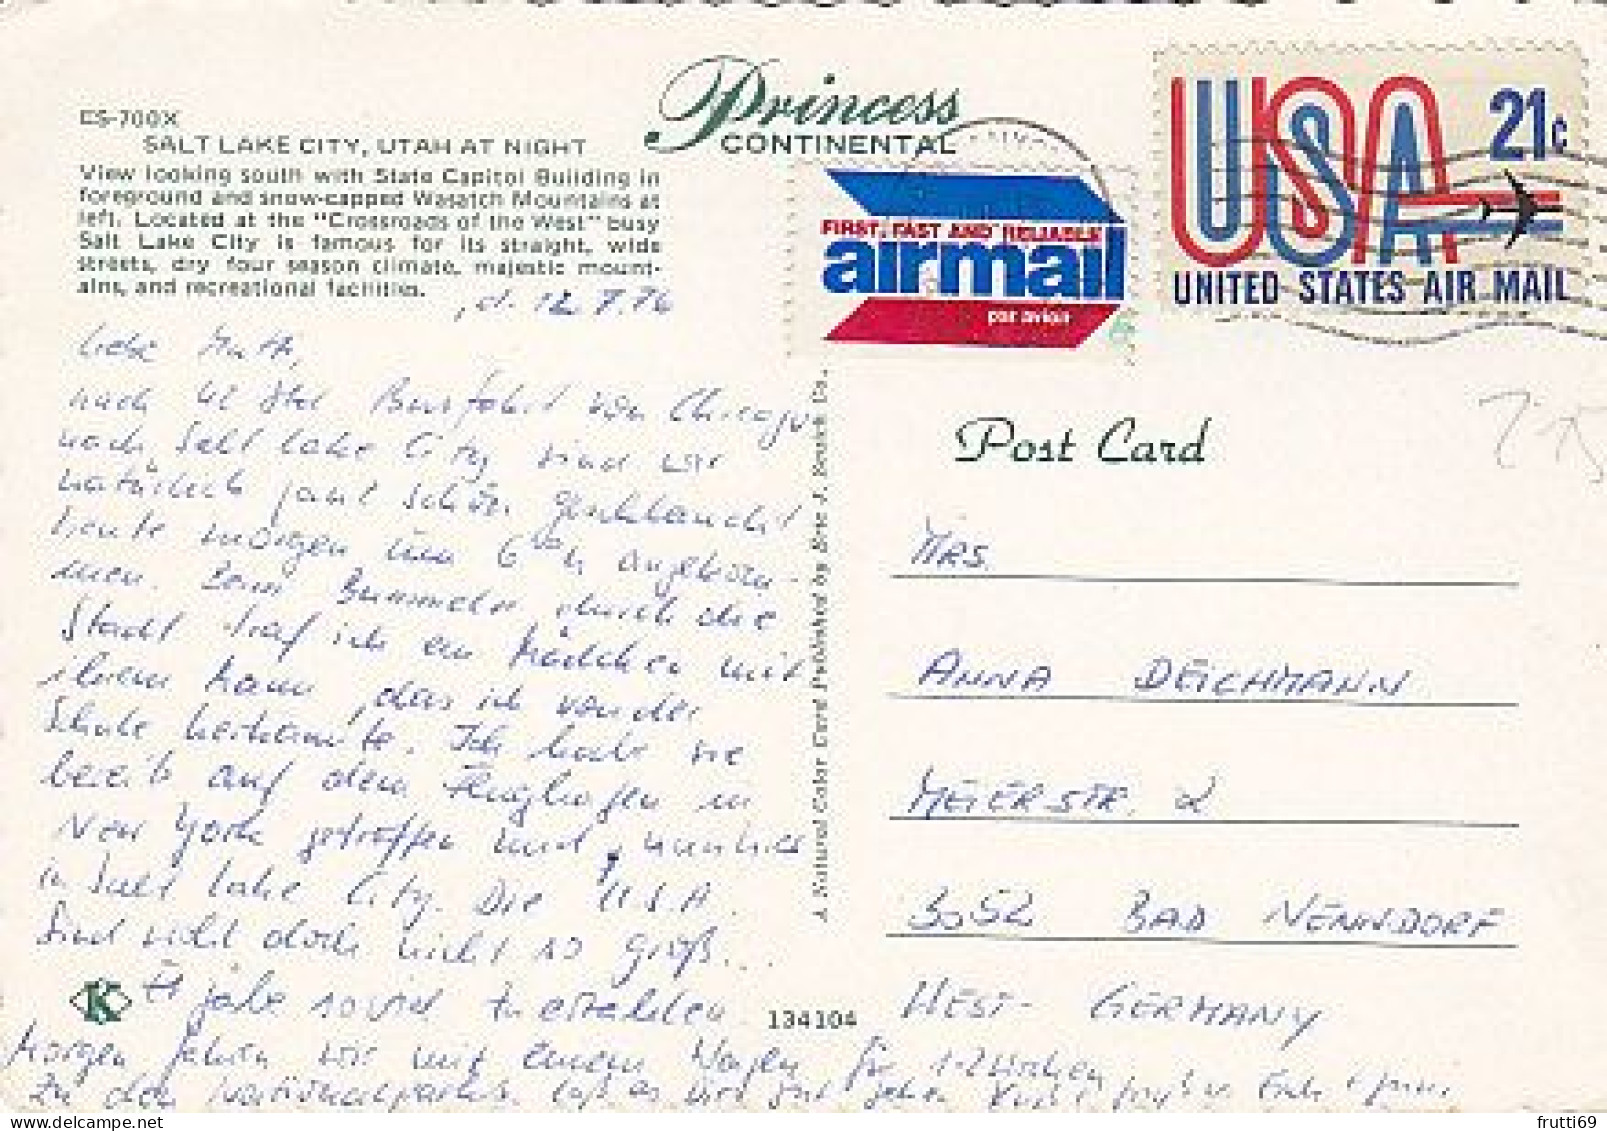 CS-700X
SALT LAKE CITY, UTAH AT NIGHT
View looking south with State Capitol Building in
foreground and snow-capped Wasatch Mountains at
left. Located at the "Crossroads of the West" busy
Salt Lake City is famous for its straight, wide
streets, dry four season climate, majestic mount-
ains, and recreational facilities.
Princess
CONTINENTAL
FIRST, FAST AND RELIABLE
airmail
par avion
USA 21c
UNITED STATES AIR MAIL
, d. 12.7.76
Liebe
nach 42 Std Busfahrt von Chicago
nach Salt Lake City sind wir
natürlich ganz schön geschlaucht
heute morgen um 6 00 h angekom-
men. Beim Bummeln durch die
Stadt traf ich ein Mädchen mit
ihrem Mann, das ich von der
Schule her kannte. Ich habe sie
bereits auf dem Flughafen in
New York getroffen und nun hier
in Salt Lake City. Die U.S.A.
sind wohl doch nicht so groß...
Es gäbe so viel zu erzählen
Morgen fahren wir mit einem Wagen für 1-2 Wochen
zu den Nationalparks.
K
134104
A Natural Color Card Published by Eric J. Seaich Co.,
Post Card
MRS.
ANNA DEICHMANN
MEIERSTR. 2
3052 BAD NENNDORF
WEST-GERMANY
frutti69